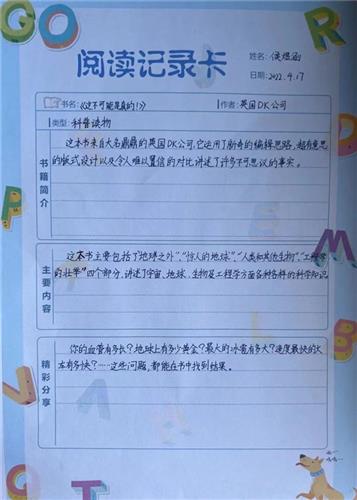 GO
R
阅读记录卡
姓名:侯煜涵
日期:2022.4.17
书名:《这不可能是真的!》
作者:英国DK公司
类型:科普读物
书籍简介
这本书来自大名鼎鼎的英国DK公司,它运用了新奇的编辑思路,超有意思
的版式设计以及令人难以置信的对比讲述了许多不可思议的事实。
主要内容
这本书主要包括了“地球之外”,“惊人的地球”,“人类和其他生物”,“工程学
的壮举”四个部分,讲述了宇宙、地球、生物及工程学方面各种各样的科学知识
精彩分享
你的血管有多长?地球上有多少黄金?最大的冰雹有多大?速度最快的
本有多快?……这些问题,都能在书中找到结果。